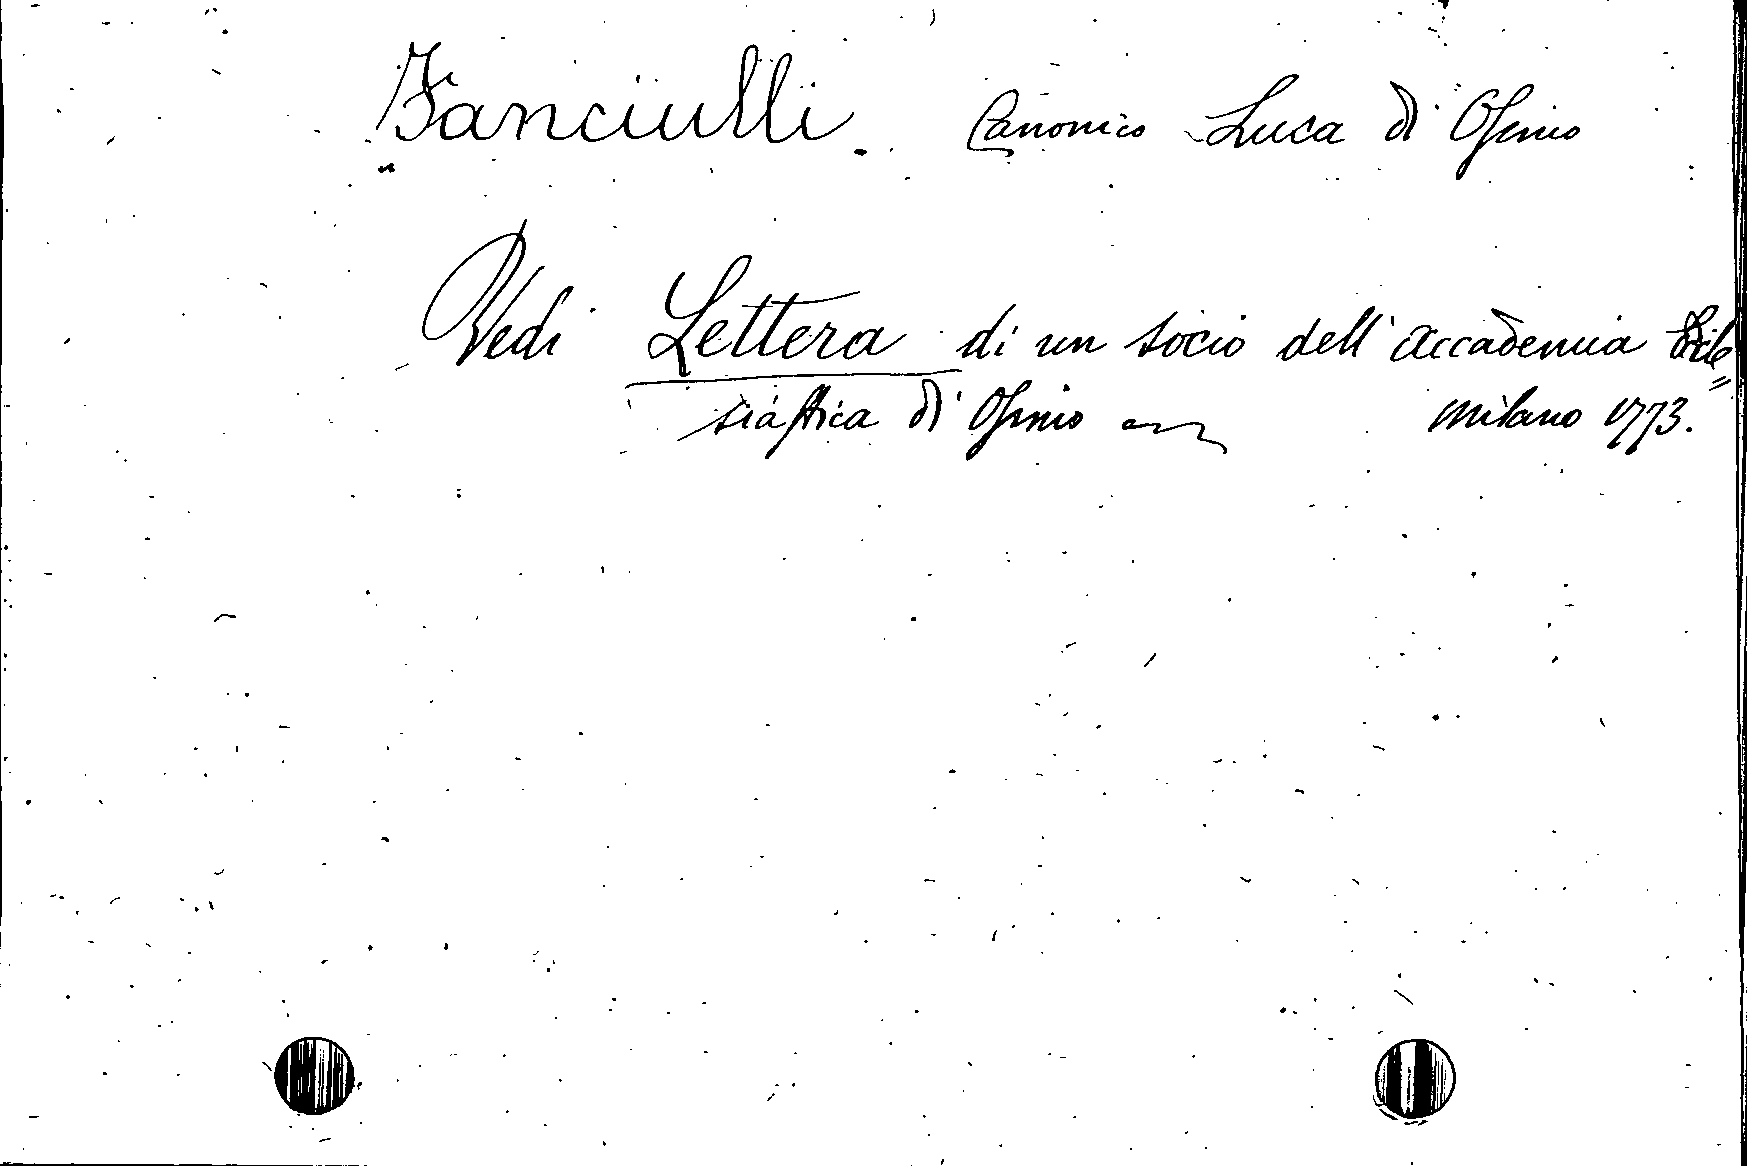 Fanciulli. Canonico Luca di Osimo
Vedi Lettera di un socio dell' accademia
siastica di Osimo Milano 1773.